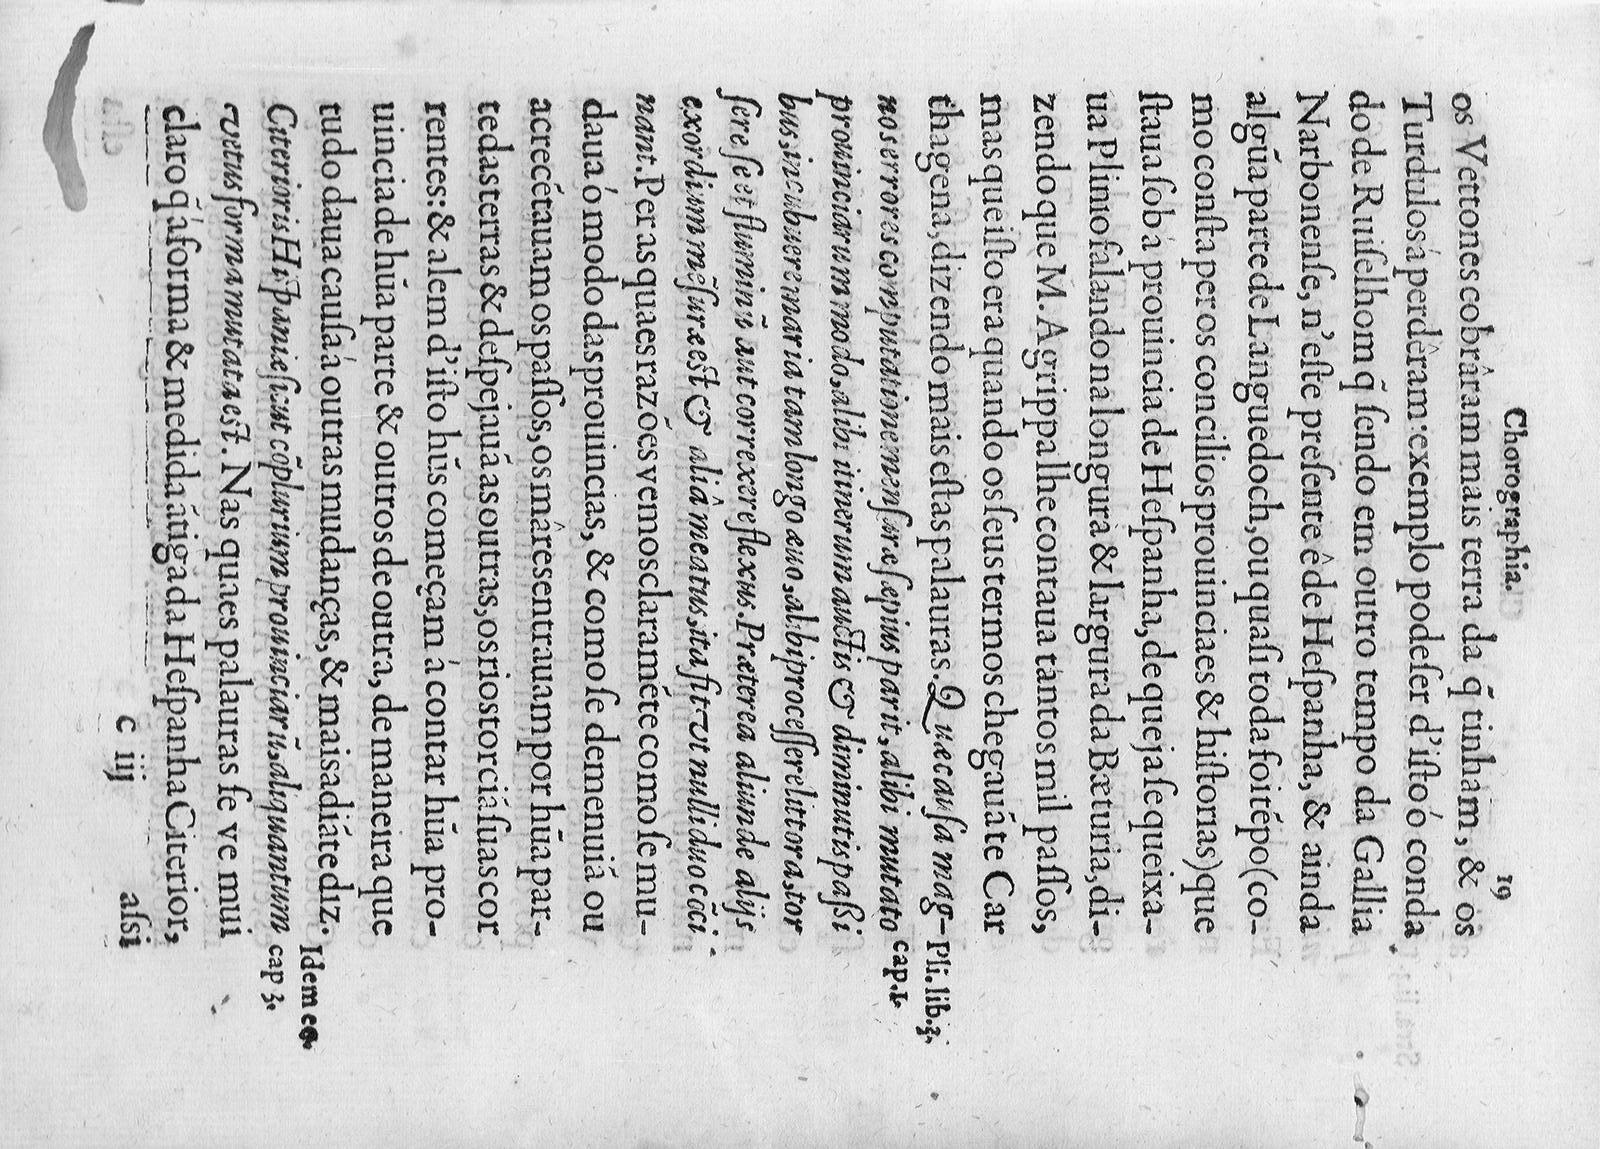 Chorographia. 19
os Vettones cobrâram mais terra da q̃ tinham, & os
Turdulos á perdêram: exemplo pode ser d'isto ó conda
do de Ruiselhom q̃ sendo em outro tempo da Gallia
Narbonense, n'este presente ê de Hespanha, & ainda
algũa parte de Languedoch, ou quasi toda foi tẽpo (co-
mo consta per os concilios prouinciaes & historias) que
staua sob á prouincia de Hespanha, de que ja se queixa-
ua Plinio falando na longura & largura da Bæturia, di-
zendo que M. Agrippa lhe contaua tantos mil passos,
mas que isto era quando os seus termos chegauã te Car
thagena, dizendo mais estas palauras. Quæ causa mag- Pli. lib. 3.
nos errores computatione mensuræ sæpius parit, alibi mutato cap. 1.
prouinciarum modo, alibi itinerum auctis & diminutis passi
bus, incubuere maria tam longo æuo, alibi processere littora, tor
sere se et fluminũ aut correxere flexus. Præterea aliunde alijs
exordium mẽsuræ est & aliâ meatus, ita fit vt nulli duo cõci
nant. Per as quaes razões vemos claramẽte como se mu-
daua ó modo das prouincias, & como se demenuiã ou
acrecẽtauam os passos, os mâres entrauam por hũa par-
te das terras & despejauã as outras, os rios torciã suas cor
rentes: & alem d'isto hũs começam á contar hũa pro-
uincia de hũa parte & outros de outra, de maneira que
tudo daua causa á outras mudanças, & mais adiãte diz. Idem eo.
Citerioris Hispaniæ sicut cõplurium prouinciarũ, aliquantum cap 3.
vetus forma mutata est. Nas quaes palauras se ve mui
claro q̃ á forma & medida ãtiga da Hespanha Citerior,
c iij assi